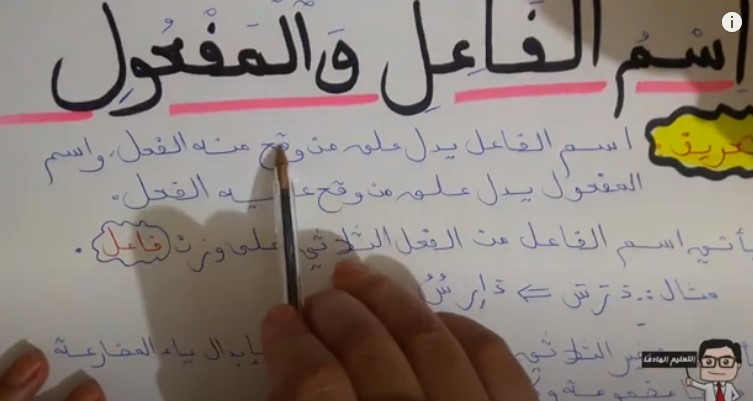 اِسْمُ الْفَاعِلِ وَالْمَفْعُولِ
تعريف: اسم الفاعل يدل على من وقع منه الفعل، واسم
المفعول يدل على من وقع عليه الفعل.
يأتي اسم الفاعل من الفعل الثلاثي على وزن فاعل.
مثال: دَرَسَ ⇐ دَارِسٌ
غير الثلاثي بإبدال ياء المضارعة
مضمومة
التعليم الهادف